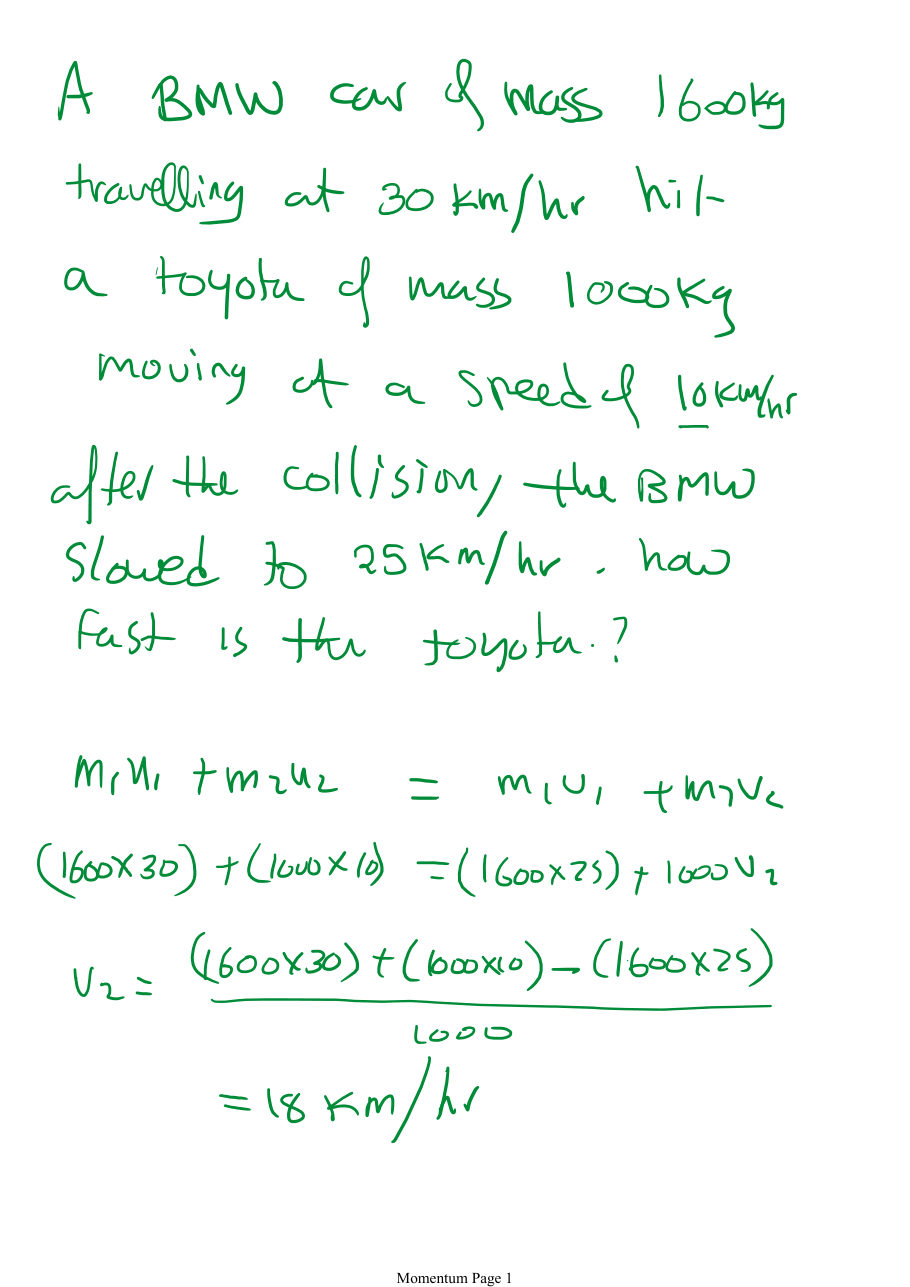 A BMW car of mass 1600kg
travelling at 30 km/hr hit
a toyota of mass 1000kg
moving at a speed of 10km/hr
after the collision, the BMW
slowed to 25 km/hr . how
fast is the toyota.?
m₁u₁ + m₂u₂ = m₁v₁ + m₂v₂
(1600×30) + (1000×10) = (1600×25) + 1000v₂
v₂ = (1600×30) + (1000×10) - (1600×25)
1000
= 18 km/hr
Momentum Page 1